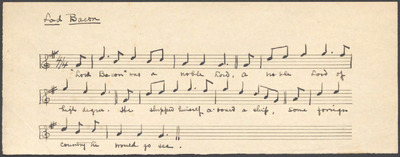 Lord Bacon
"Lord Bacon" was a noble Lord, a noble Lord of
high degree. He shipped himself a-board a ship, some foreign
country he would go see.